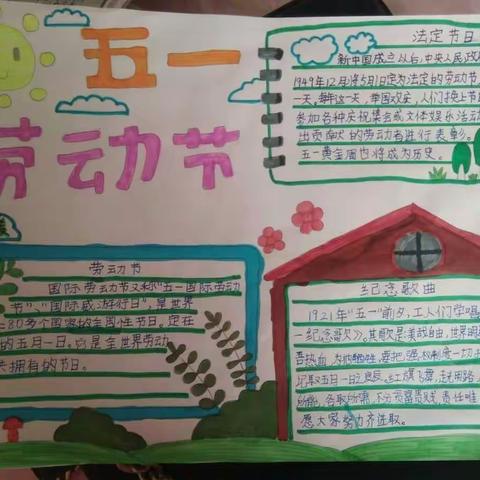 五一
劳动节
法定节日
新中国成立以后,中央人民政
1949年12月将5月1日定为法定的劳动节
一天,每年这一天,举国欢庆,人们换上节日
参加各种庆祝集会或文体娱乐活动
出贡献的劳动者进行表彰。
五一黄金周也将成为历史。
劳动节
国际劳动节又称"五一国际劳动
节"、"国际 游行日",是世界
80多个国家的全国性节日。定在
的五月一日。它是全世界劳动
共拥有的节日。
纪念歌曲
1921年"五一"前夕,工人们学唱
纪念歌》。其歌是:美哉自由,世界明
吾热血,为他牺牲,要把强权制度一切
记取五月一日之良辰。红旗飞舞,走
所能,各取所需,不分贫富贵贱,责任唯
愿大家努力齐进取。